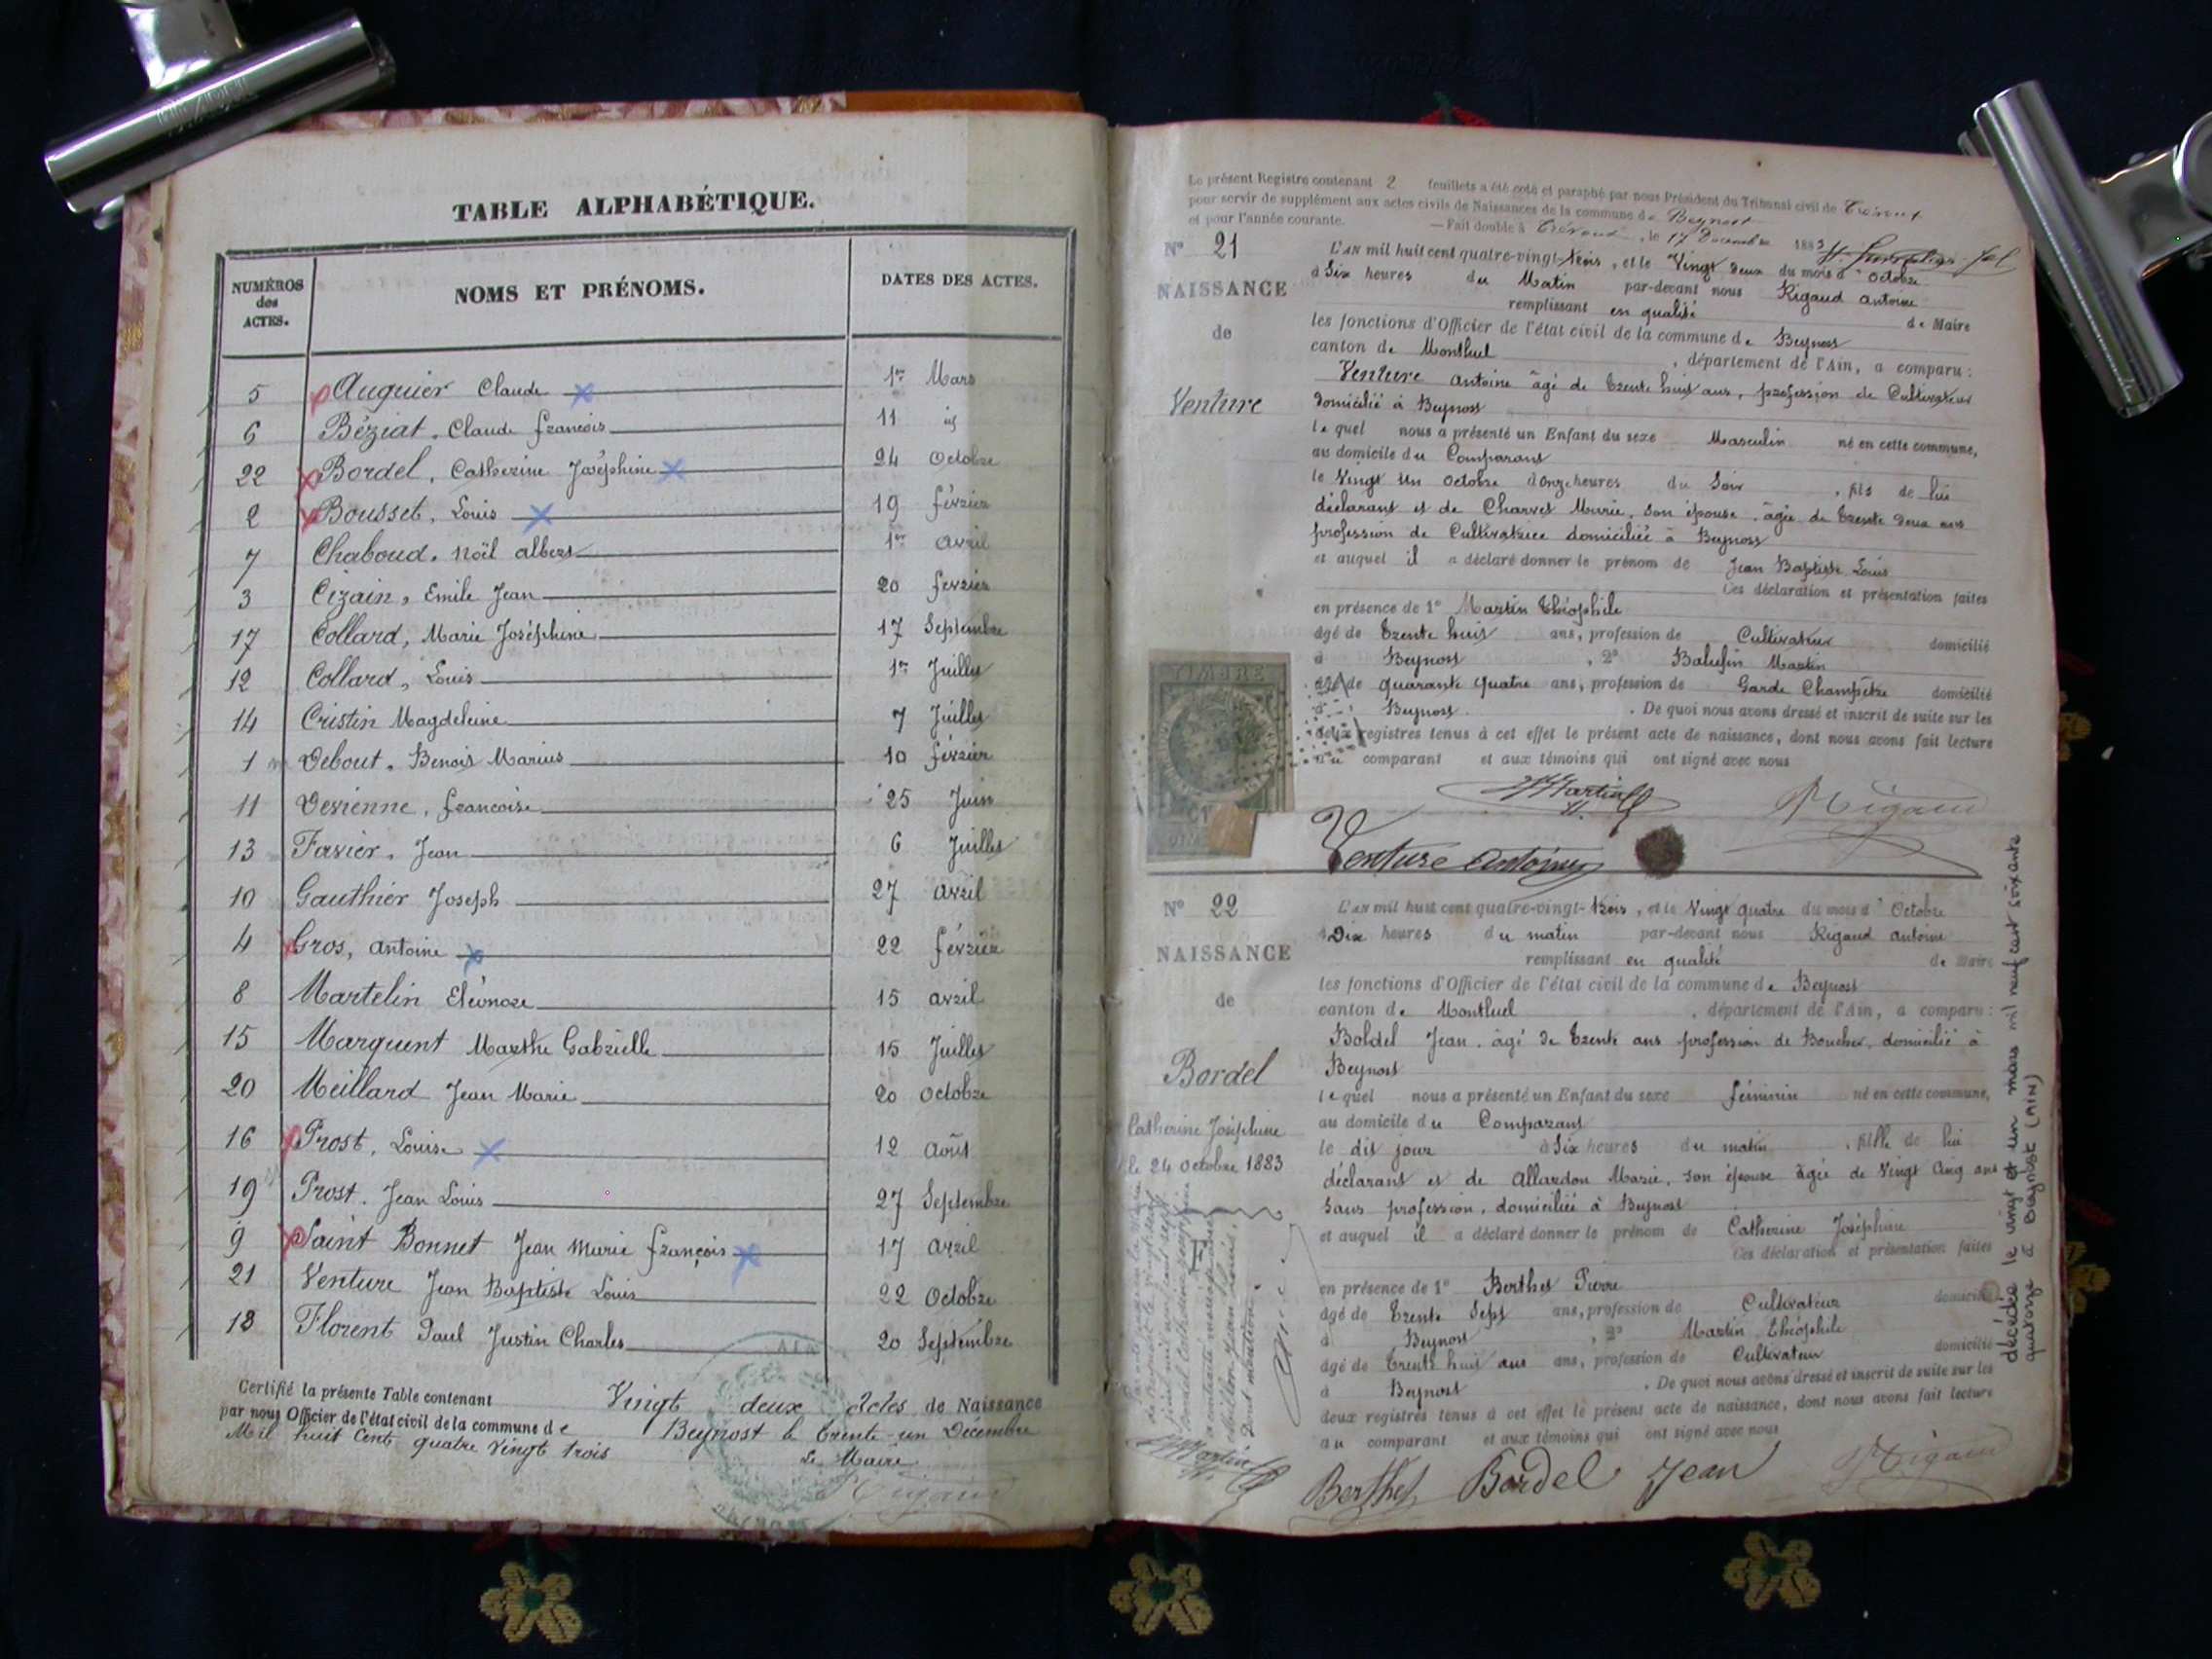 TABLE ALPHABÉTIQUE.
NUMÉROS des ACTES. NOMS ET PRÉNOMS. DATES DES ACTES.
5 Auguier Claude 1er Mars
6 Béziat, Claude françois 11 id
22 Bordel, Catherine Joséphine 24 Octobre
2 Bousset, Louis 19 février
7 Chaboud, Noël albert 1er avril
3 Cizain, Emile Jean 20 fevrier
17 Collard, Marie Joséphine 17 Septembre
12 Collard, Louis 1er Juillet
14 Cristin Magdeleine 7 Juillet
1 Debout, Benoit Marius 10 février
11 Devienne, francoise 25 Juin
13 Favier, Jean 6 Juillet
10 Gauthier Joseph 27 avril
4 Gros, antoine 22 février
8 Martelin Eléonore 15 avril
15 Marquent Marthe Gabrielle 15 Juillet
20 Meillard Jean Marie 20 octobre
16 Prost, Louise 12 Août
19 Prost, Jean Louis 27 Septembre
9 Saint Bonnet Jean Marie françois 17 avril
21 Venture Jean Baptiste Louis 22 Octobre
18 Florent Paul Justin Charles 20 Septembre
Certifié la présente Table contenant Vingt deux Actes de Naissance
par nous Officier de l'état civil de la commune de Beynost le trente-un Décembre
Mil huit Cent quatre vingt trois Le Maire
Rigaud
Le présent Registre contenant 2 feuillets a été coté et paraphé par nous Président du Tribunal civil de Trévoux
pour servir de supplément aux actes civils de Naissances de la commune de Beynost
et pour l'année courante. — Fait double à Trévoux, le 17 Decembre 1883
N° 21
NAISSANCE
de
Venture
L'AN mil huit cent quatre-vingt-trois, et le Vingt deux du mois d'Octobre
à Six heures du Matin par-devant nous Rigaud antoine
remplissant en qualité de Maire
les fonctions d'Officier de l'état civil de la commune de Beynost
canton de Montluel, département de l'Ain, a comparu :
Venture antoine âgé de trente huit ans, profession de Cultivateur
domicilié à Beynost
lequel nous a présenté un Enfant du sexe Masculin né en cette commune,
au domicile du Comparant
le Vingt Un Octobre à Onze heures du Soir, fils de lui
déclarant et de Charvet Marie, son épouse, âgée de trente deux ans
profession de Cultivatrice domiciliée à Beynost
et auquel il a déclaré donner le prénom de Jean Baptiste Louis
Ces déclaration et présentation faites
en présence de 1° Martin théophile
âgé de trente huit ans, profession de Cultivateur domicilié
à Beynost, 2° Balufin Martin
âgé de quarante quatre ans, profession de Garde Champêtre domicilié
à Beynost. De quoi nous avons dressé et inscrit de suite sur les
deux registres tenus à cet effet le présent acte de naissance, dont nous avons fait lecture
au comparant et aux témoins qui ont signé avec nous
TIMBRE
Martin Rigaud
Venture Antoine
N° 22
NAISSANCE
de
Bordel
Catherine Joséphine
le 24 Octobre 1883
L'AN mil huit cent quatre-vingt-trois, et le Vingt quatre du mois d'Octobre
à Dix heures du matin par-devant nous Rigaud antoine
remplissant en qualité de Maire
les fonctions d'Officier de l'état civil de la commune de Beynost
canton de Montluel, département de l'Ain, a comparu :
Boldel Jean, âgé de trente ans profession de Boucher, domicilié à
Beynost
lequel nous a présenté un Enfant du sexe féminin né en cette commune,
au domicile du Comparant
le dit jour à Six heures du matin, fille de lui
déclarant et de Allardon Marie, son épouse âgée de Vingt Cinq ans
Sans profession, domiciliée à Beynost
et auquel il a déclaré donner le prénom de Catherine Joséphine
Ces déclaration et présentation faites
en présence de 1° Berthet Pierre
âgé de trente Sept ans, profession de Cultivateur domicilié
à Beynost, 2° Martin Théophile
âgé de trente huit ans ans, profession de Cultivateur domicilié
à Beynost. De quoi nous avons dressé et inscrit de suite sur les
deux registres tenus à cet effet le présent acte de naissance, dont nous avons fait lecture
au comparant et aux témoins qui ont signé avec nous
Martin Berthet Bordel Jean Rigaud
décédée le vingt et un mars mil neuf cent soixante
quatorze à Beynost (AIN)